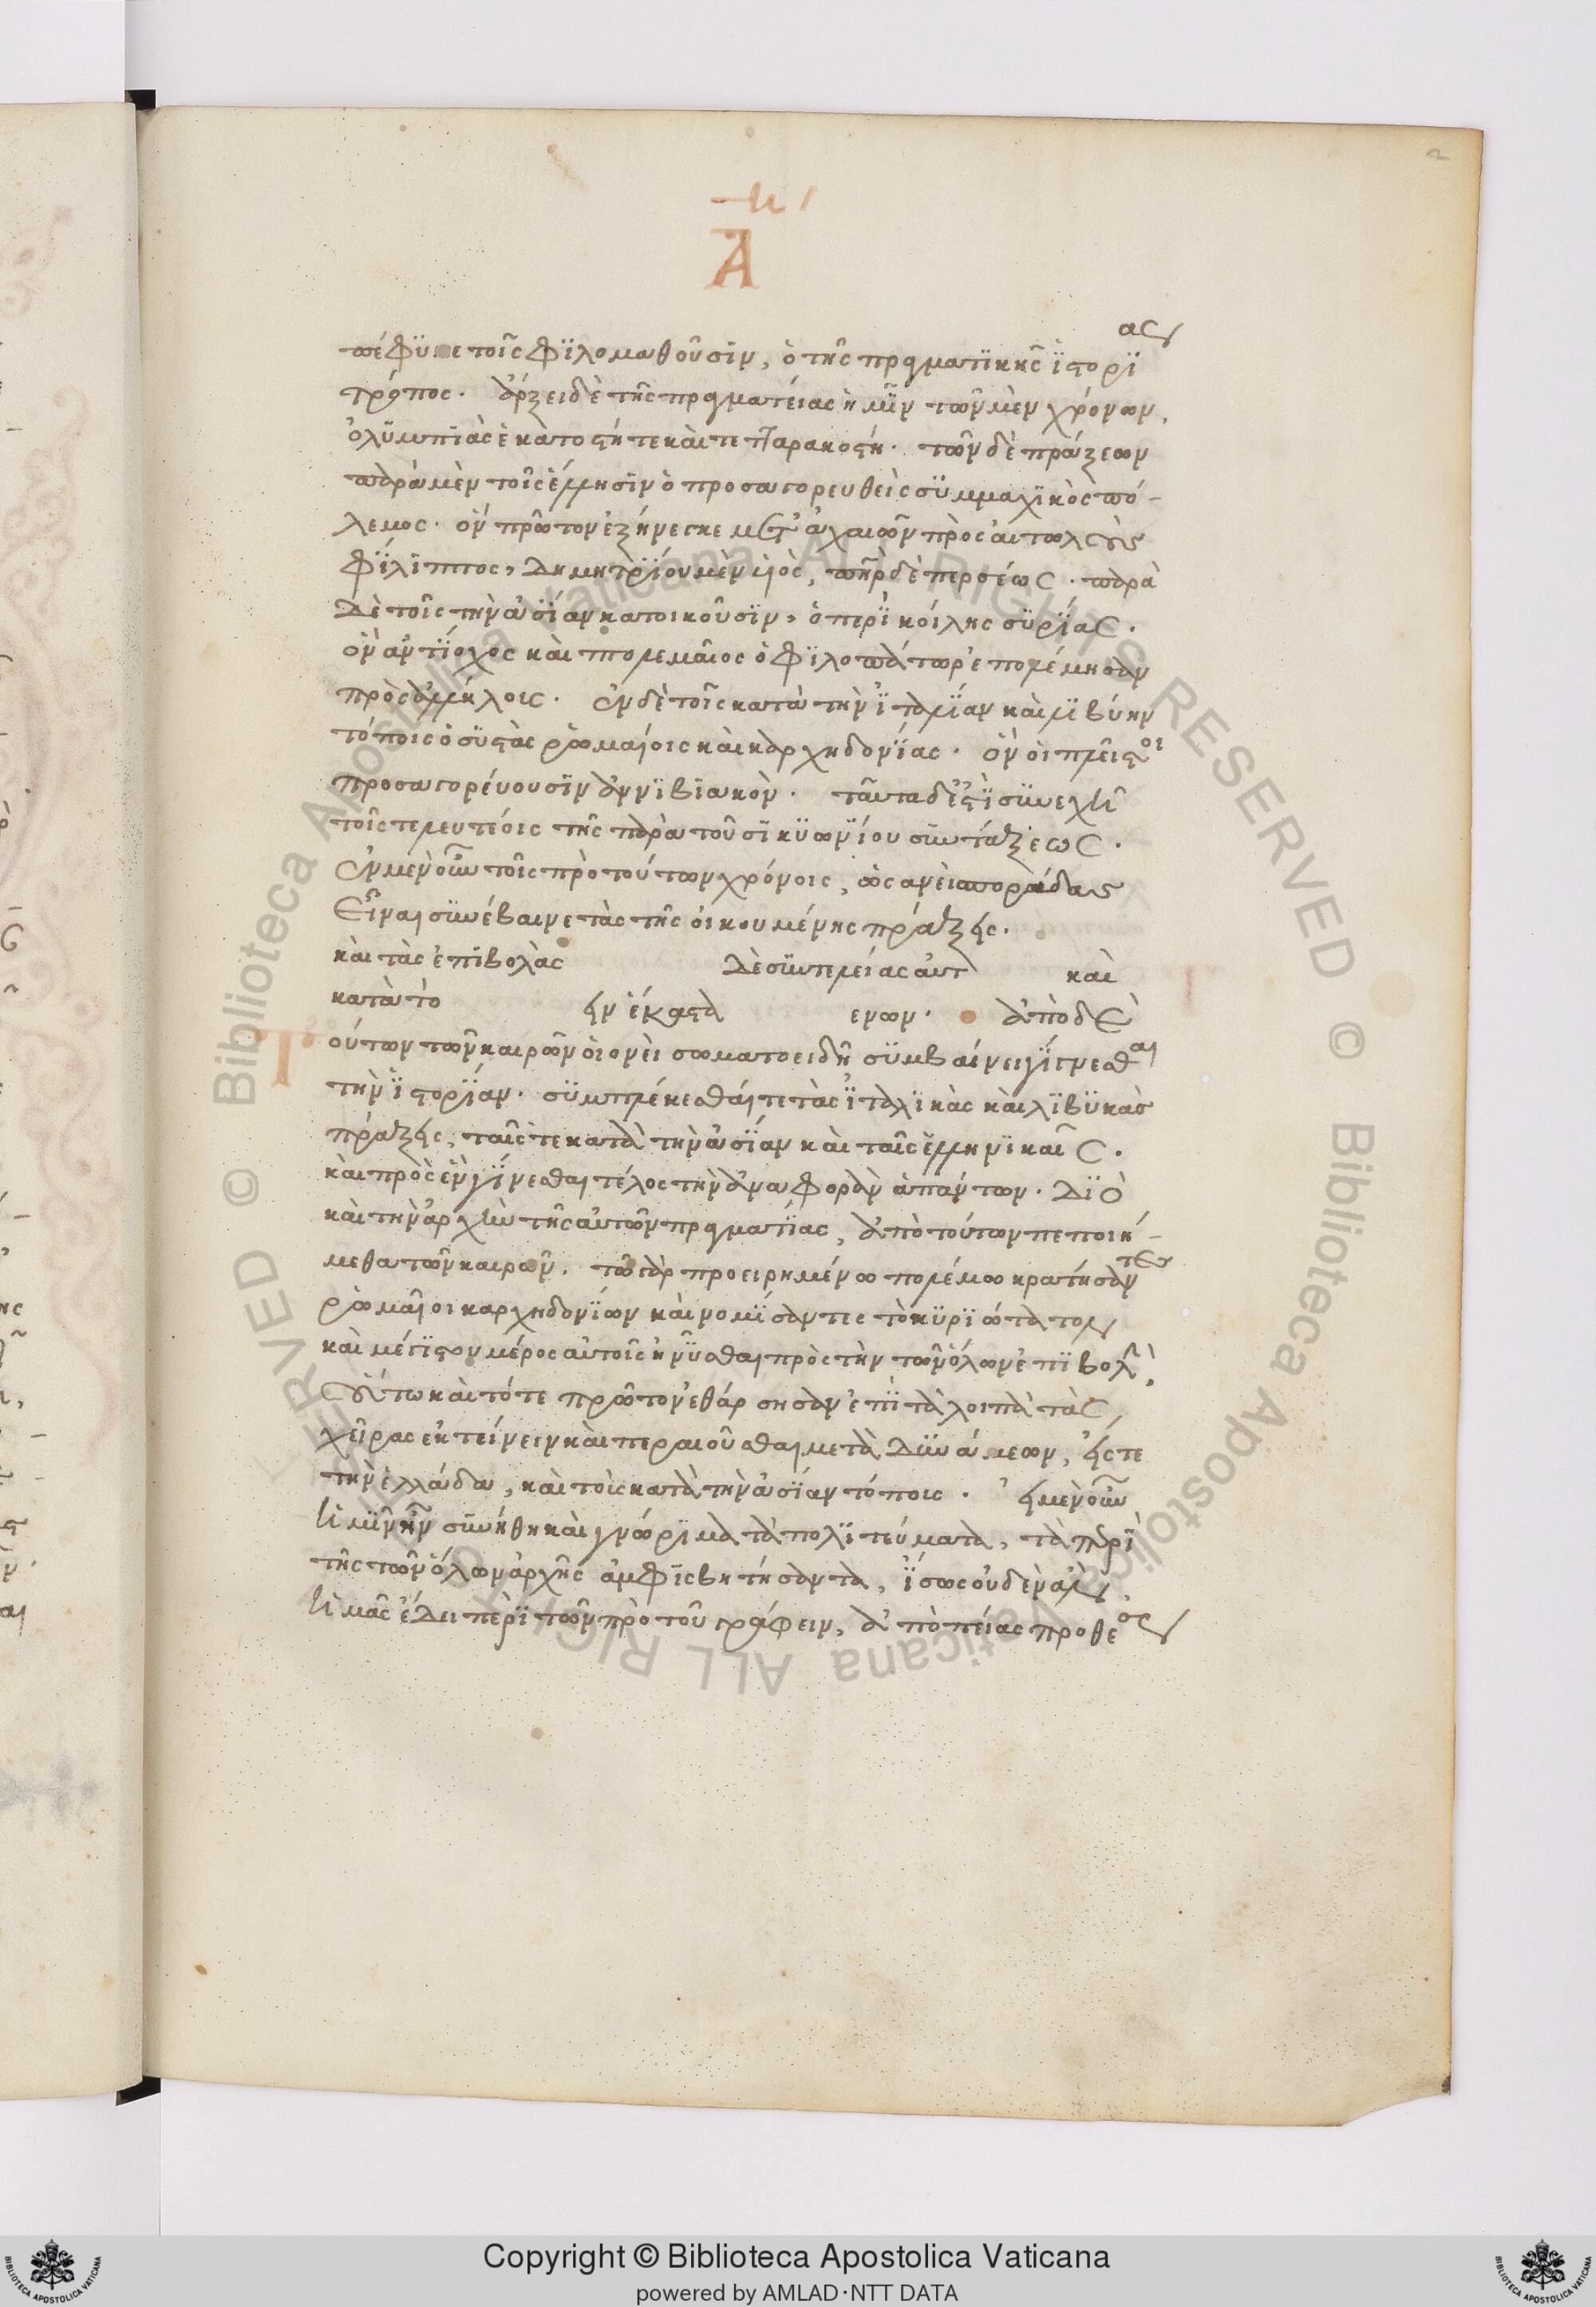 Α
πέφϋκε τοῖς φϊλομαθοῦσϊν, ὁ τῆς πραγματϊκῆς ϊστορϊας
τρόπος. ἄρξει δὲ τῆς πραγματείας ἡμῖν τῶν μὲν χρόνων,
ὀλϋμπϊὰς ἑκατοστή τε καὶ τετταρακοστή. τῶν δὲ πράξεων
παρὰ μὲν τοῖς ἕλλησϊν ὁ προσαγορευθεὶς σϋμμαχϊκὸς πό-
λεμος. ὃν πρῶτον ἐξήνεγκε μετ' ἀχαιῶν πρὸς αἰτωλοὺς
φϊλϊππος, δημητρϊου μὲν υἱὸς, πατὴρ δὲ περσέως. παρὰ
δὲ τοῖς τὴν ἀσϊαν κατοικοῦσϊν, ὁ περϊ κοίλης σϋρϊας.
ὃν ἀντϊοχος καὶ πτολεμαῖος ὁ φϊλοπάτωρ ἐπολέμησαν
πρὸς ἀλλήλοις. ἐν δὲ τοῖς κατὰ τὴν ϊταλϊαν καὶ λϊβύην
τόποις ὁ συστὰς ρωμαίοις καὶ καρχηδονϊας. ὃν οἱ πλεῖστοι
προσαγορεύουσϊν ἀννϊβϊακόν. ταῦτα δ' ἐστϊ σϋνεχῆ
τοῖς τελευτέοις τῆς παρὰ τοῦ σϊκϋωνϊου συντάξεως.
ἐν μὲν οὖν τοῖς πρὸ τούτων χρόνοις, ὡς ἀνεὶ σποράδας
εἶναι σϋνέβαινε τὰς τῆς οἰκουμένης πράξεις.
καὶ τὰς ἐπϊβολὰς δὲ συντελείας αὐτ καὶ
κατὰ τὸ ἐν ἕκαστα ενων. ἀπὸ δὲ
Τούτων τῶν καιρῶν οἱονεὶ σωματοειδῆ σϋμβαίνει γϊγνεσθαι
τὴν ϊστορϊαν. σϋμπλέκεσθαί τε τὰς ϊταλϊκὰς καὶ λϊβϋκὰς
πράξεις, ταῖς τε κατὰ τὴν ἀσϊαν καὶ ταῖς ἑλληνϊκαῖς.
καὶ πρὸς ἓν γϊνεσθαι τέλος τὴν ἀναφορὰν ἁπάντων. διὸ
καὶ τὴν ἀρχὴν τῆς αὐτῶν πραγματϊας, ἀπὸ τούτων πεποιή-
μεθα τῶν καιρῶν. τῶ γὰρ προειρημένω πολέμω κρατήσαντες
ρωμαῖοι καρχηδονϊων καὶ νομϊσαντες τὸ κϋρϊώτατον
καὶ μέγϊστον μέρος αὐτοῖς ἠνῦσθαι πρὸς τὴν τῶν ὅλων ἐπϊβολὴν,
οὕτω καὶ τότε πρῶτον ἐθάρσησαν ἐπϊ τὰ λοιπὰ τὰς
χεῖρας ἐκτείνειν καὶ περαιοῦσθαι μετὰ δϋνάμεων, εἴς τε
τὴν ἑλλάδα, καὶ τοὶς κατὰ τὴν ἀσϊαν τόποις. εἰ μὲν οὖν
ἡμῖν ἦν συνήθη καὶ γνώρϊμα τὰ πολϊτεύματα, τὰ περϊ
τῆς τῶν ὅλων ἀρχῆς ἀμφϊσβητήσαντα, ϊσως οὐδὲν ἂν
ἡμᾶς ἔδει περϊ τῶν πρὸ τοῦ γράφειν, ἀπὸ ποίας προθέσ